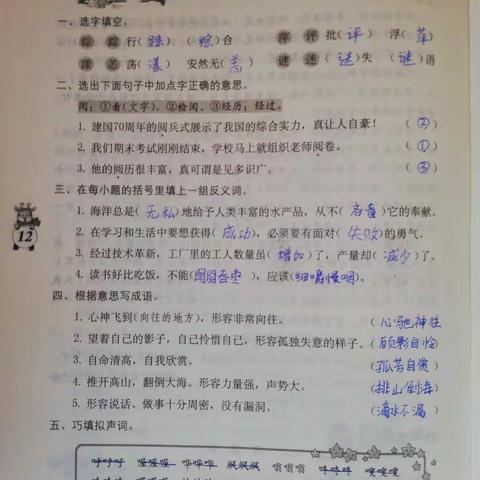 一、选字填空。
综 踪 行(踪) (综)合 萍 评 批(评) 浮(萍)
漾 恙 荡(漾) 安然无(恙) 谜 迷 (迷)失 (谜)语
二、选出下面句子中加点字正确的意思。
阅:①看(文字)。②检阅。③经历;经过。
1. 建国70周年的阅兵式展示了我国的综合实力,真让人自豪! (②)
2. 我们期末考试刚刚结束,学校马上就组织老师阅卷。 (①)
3. 他的阅历很丰富,真可谓是见多识广。 (③)
三、在每小题的括号里填上一组反义词。
1. 海洋总是(无私)地给予人类丰富的水产品,从不(吝啬)它的奉献。
2. 在学习和生活中要想获得(成功),必须要有面对(失败)的勇气。
3. 经过技术革新,工厂里的工人数量虽(增加)了,产量却(减少)了。
4. 读书好比吃饭,不能(囫囵吞枣),应该(细嚼慢咽)。
12
四、根据意思写成语。
1. 心神飞到(向往的地方),形容非常向往。 (心驰神往
2. 望着自己的影子,自己怜惜自己,形容孤独失意的样子。(顾影自怜
3. 自命清高,自我欣赏。 (孤芳自赏)
4. 推开高山,翻倒大海。形容力量强,声势大。 (排山倒海)
5. 形容说话、做事十分周密,没有漏洞。 (滴水不漏)
五、巧填拟声词。
呼呼呼 喔喔喔 哗哗哗 嗡嗡嗡 咚咚咚 嘎嘎嘎